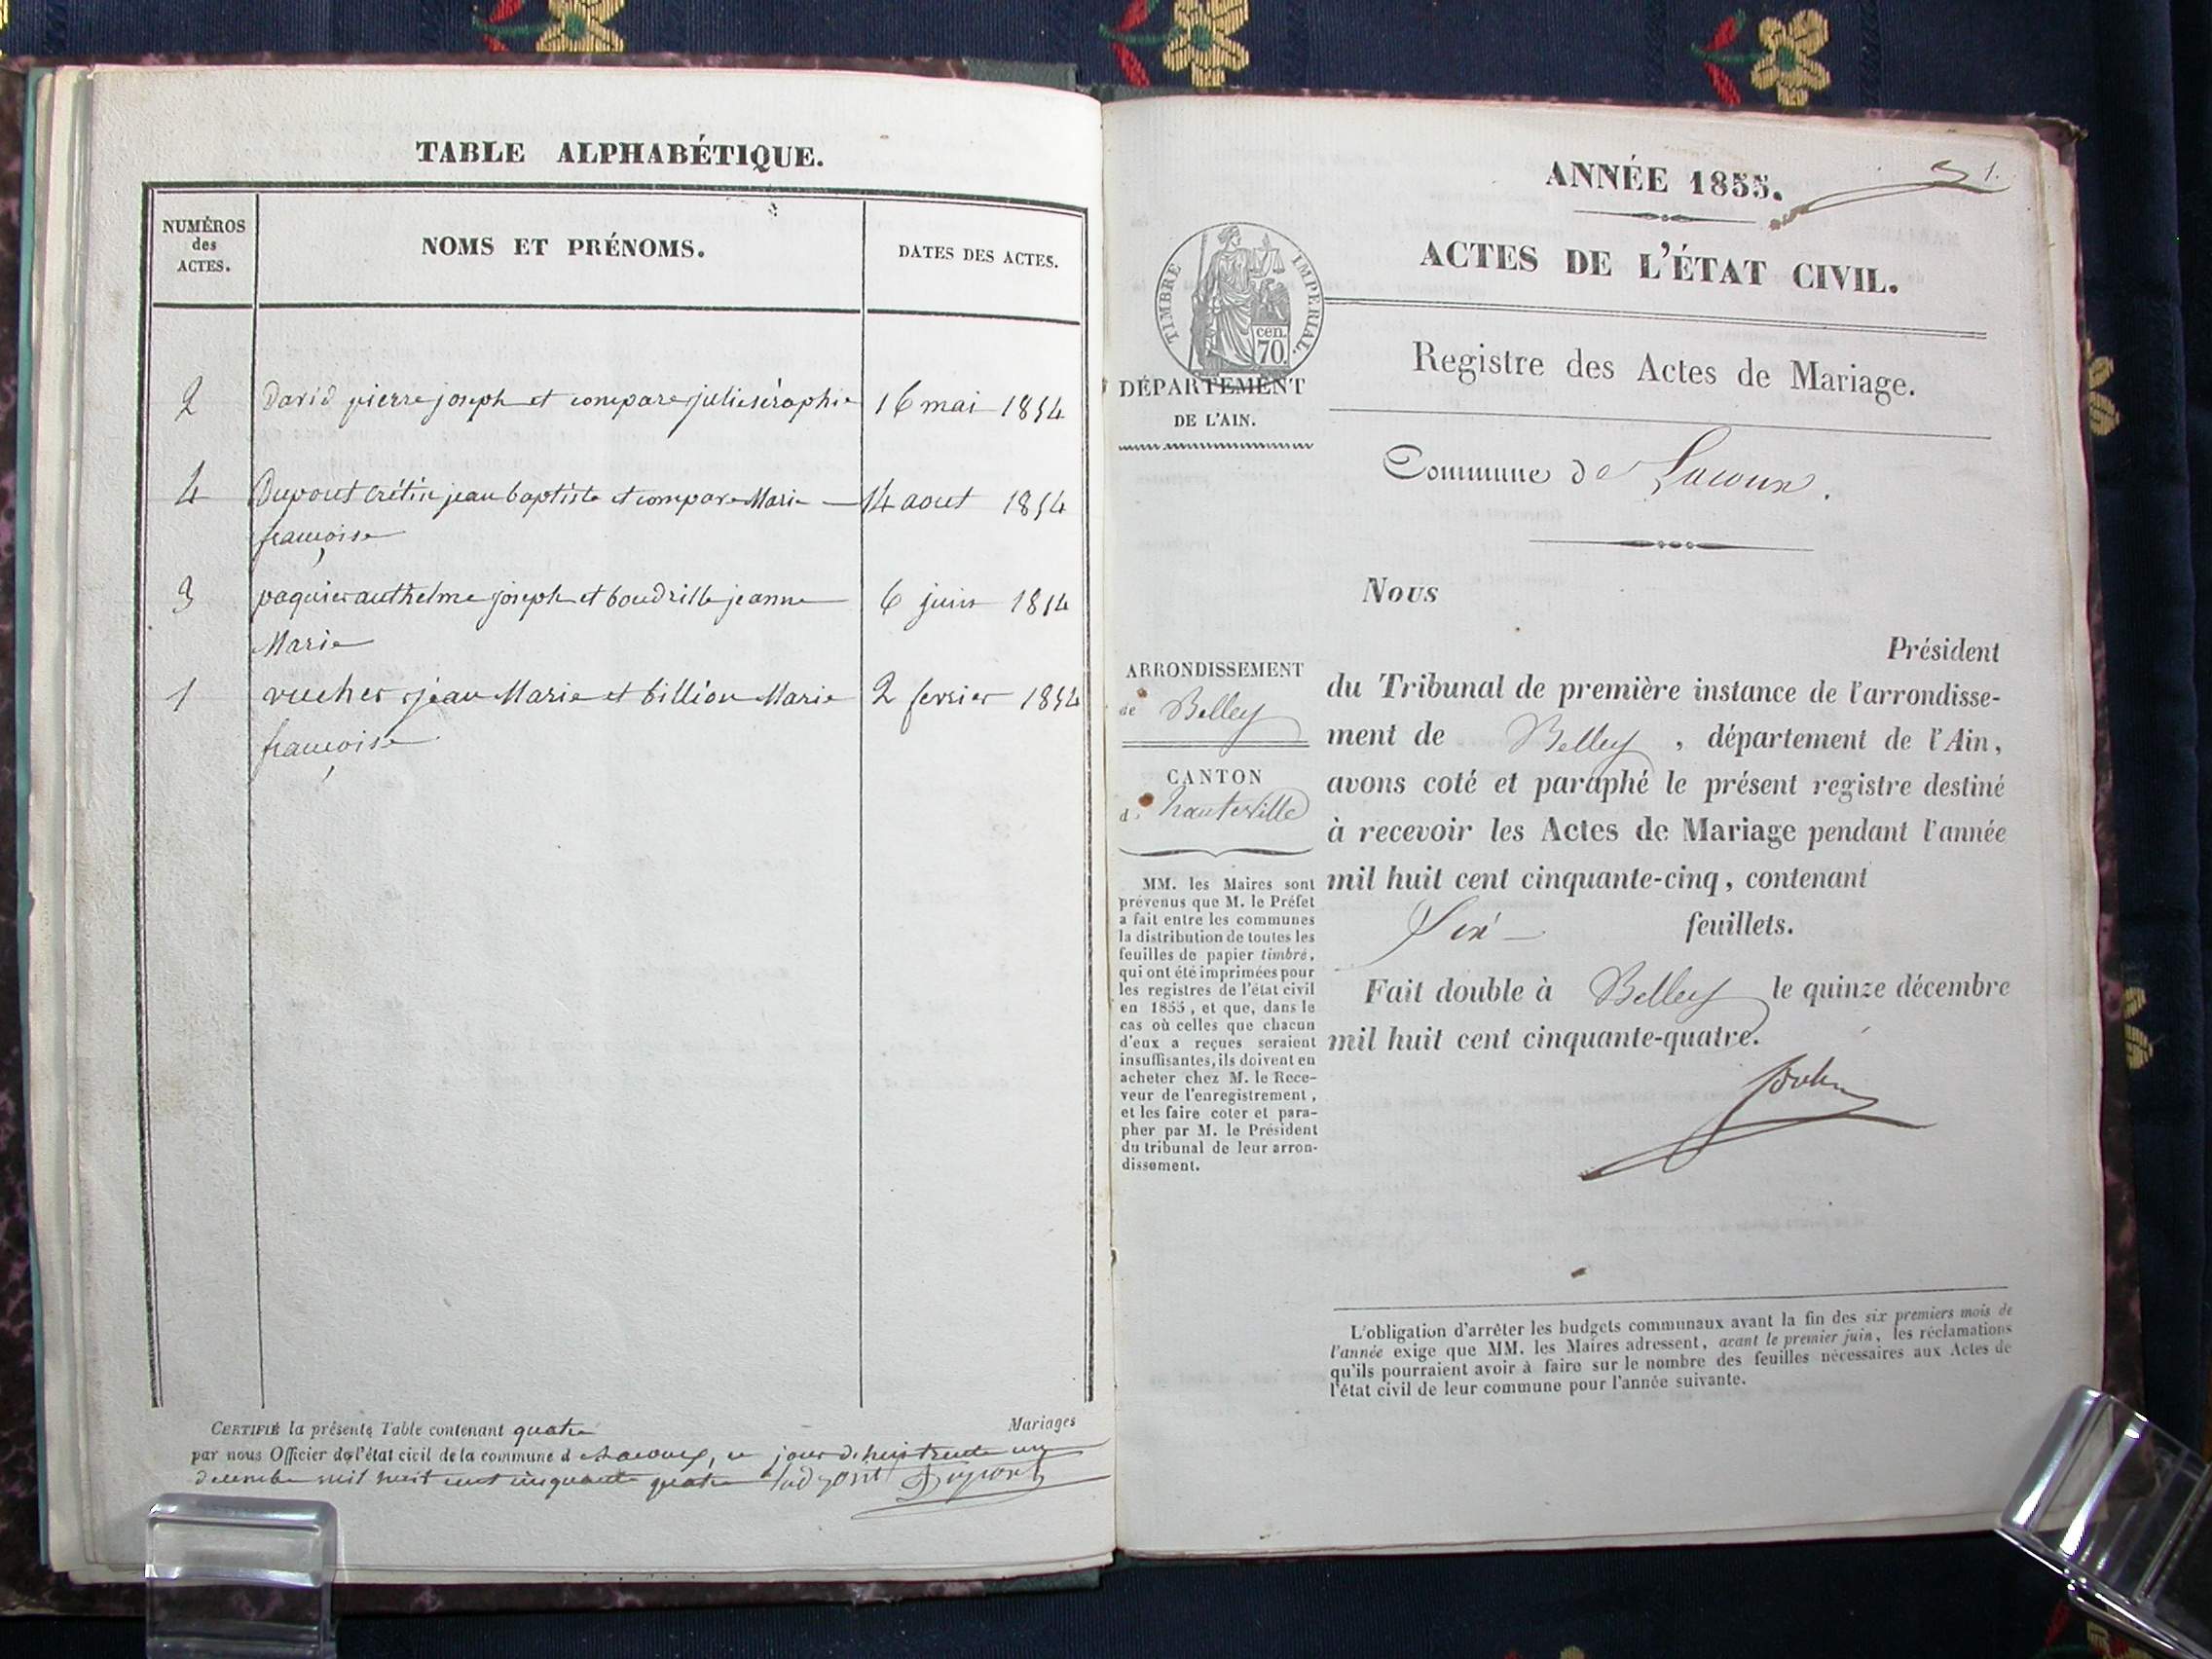 TABLE ALPHABÉTIQUE.
NUMÉROS
des
ACTES.
NOMS ET PRÉNOMS.
DATES DES ACTES.
2 david pierre joseph et compare julie séraphie 16 mai 1854
4 Dupont crétin jean baptiste et compare Marie 14 aout 1854
françoise
3 paquier anthelme joseph et boudrille jeanne 6 juin 1854
Marie
1 vucher jean Marie et billion Marie 2 fevrier 1854
françoise
CERTIFIÉ la présente Table contenant quatre Mariages
par nous Officier de l'état civil de la commune d Lacoux, ce jour d'hui trente un
decembre mil huit cent cinquante quatre Dupont
1.
ANNÉE 1855.
ACTES DE L'ÉTAT CIVIL.
TIMBRE IMPÉRIAL.
cen.
70.
DÉPARTEMENT
DE L'AIN.
Registre des Actes de Mariage.
Commune de Lacoux.
ARRONDISSEMENT
de Belley
CANTON
d. hauteville
MM. les Maires sont
prévenus que M. le Préfet
a fait entre les communes
la distribution de toutes les
feuilles de papier timbré,
qui ont été imprimées pour
les registres de l'état civil
en 1855, et que, dans le
cas où celles que chacun
d'eux a reçues seraient
insuffisantes, ils doivent en
acheter chez M. le Rece-
veur de l'enregistrement,
et les faire coter et para-
pher par M. le Président
du tribunal de leur arron-
dissement.
Nous
Président
du Tribunal de première instance de l'arrondisse-
ment de Belley, département de l'Ain,
avons coté et paraphé le présent registre destiné
à recevoir les Actes de Mariage pendant l'année
mil huit cent cinquante-cinq, contenant
Six feuillets.
Fait double à Belley le quinze décembre
mil huit cent cinquante-quatre.
L'obligation d'arrêter les budgets communaux avant la fin des six premiers mois de
l'année exige que MM. les Maires adressent, avant le premier juin, les réclamations
qu'ils pourraient avoir à faire sur le nombre des feuilles nécessaires aux Actes de
l'état civil de leur commune pour l'année suivante.